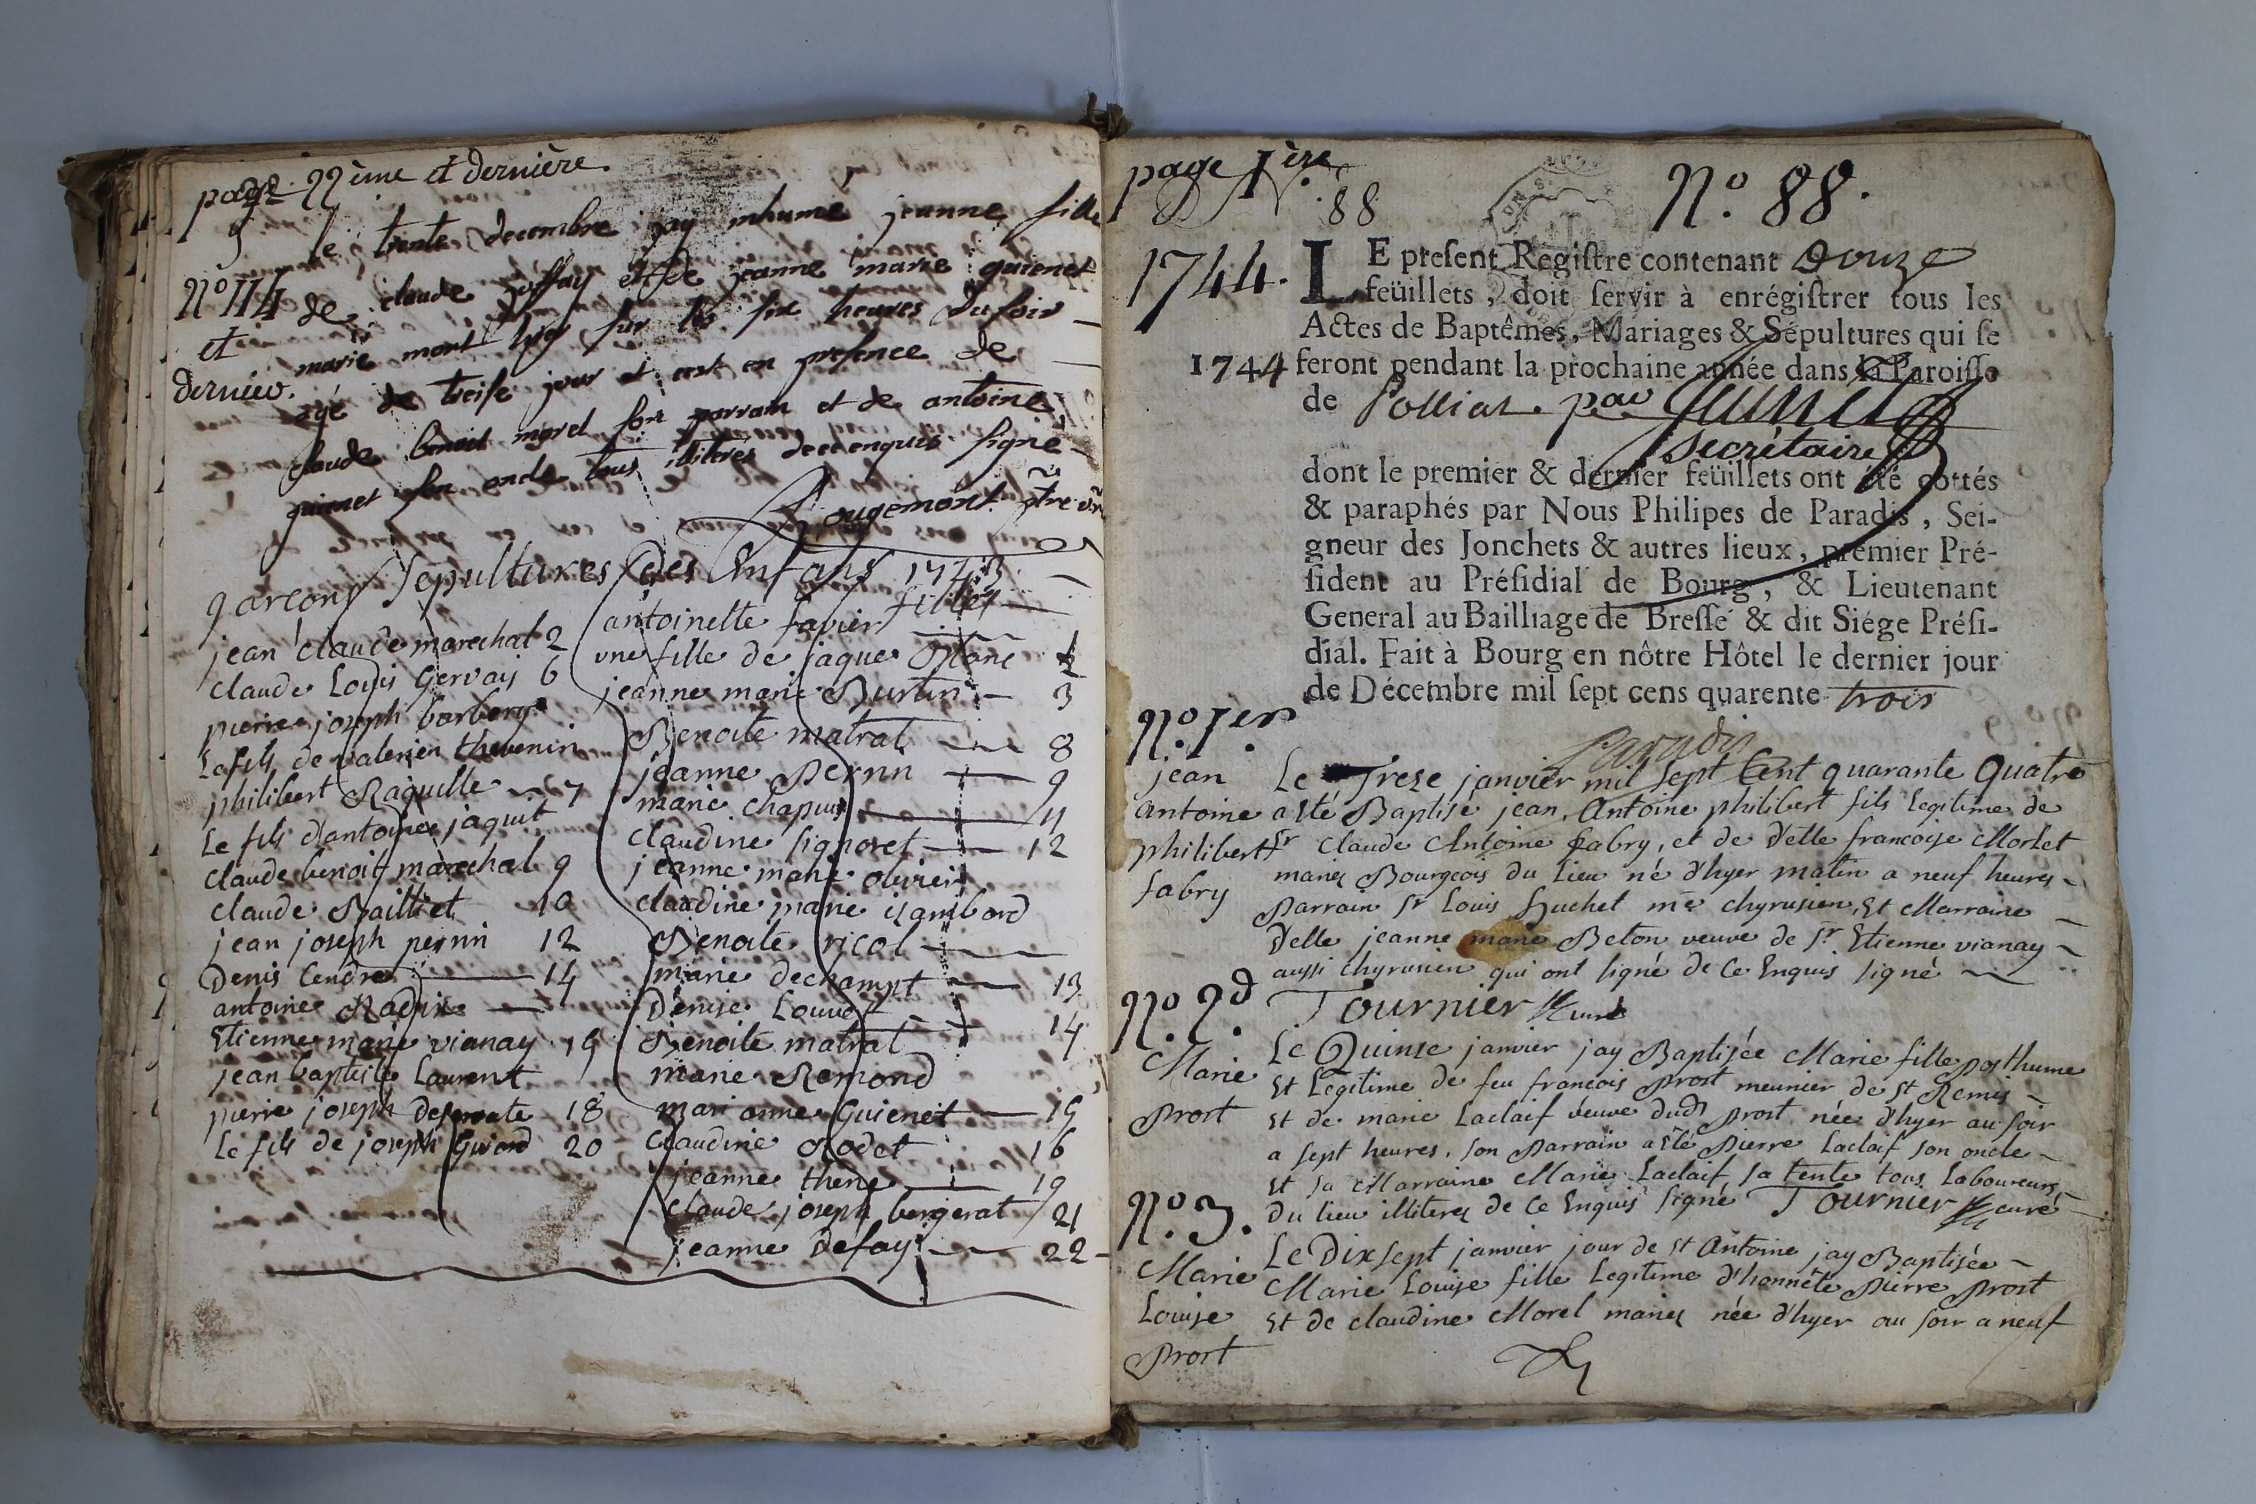 page 22ème et dernière.
le trente decembre jay inhumé jeanne fille
No 114 de claude joffay et de jeanne marie guienet
et marie mort hyer sur les six heures du soir
dernier. agé de treise jour et cest en presence de
claude benoit morel son parrain et de antoine
guienet son oncle tous illiteres de ce enquis signé
Rougemont ptre vic
Sepultures des Enfans 1743
garçons
filles
antoinette favier
jean claude marechal 2
une fille de jaque Blanc 2
claude Louis Gervais 6
jeanne marie Burtin 3
pierre joseph barberet
Benoite matrat 8
Le fils de valerien thevenin
jeanne Pernin 9
philibert Raquille 7
marie chapuis 11
Le fils d'antoine jaquit
claudine signoret 12
claude benoit marechal 9
jeanne marie olivier
claude Bailliet 10
claudine marie isambard
jean joseph pernin 12
Benoite ricol
Denis Cendre 14
marie dechampt 13
antoine Radix
Denise Louvet
Etienne marie vianay 15
Benoite matrat 14
jean baptiste Laurent
marie Remond
pierre joseph deseroute 18
mari anne Guienet 15
Le fils de joseph Givord 20
claudine Rodet 16
jeanne thene 19
claude joseph bergerat 21
jeanne defay 22
page 1ère
No. 88
No. 88.
1744.
LE present Registre contenant Douze
feüillets, doit servir à enrégistrer tous les
Actes de Baptêmes, Mariages & Sépultures qui se
1744 feront pendant la prochaine année dans la Paroisse
de Polliat. par
secrétaire
dont le premier & dernier feüillets ont été cottés
& paraphés par Nous Philipes de Paradis, Sei-
gneur des Jonchets & autres lieux, premier Pré-
sident au Présidial de Bourg, & Lieutenant
General au Bailliage de Bresse & dit Siége Prési-
dial. Fait à Bourg en nôtre Hôtel le dernier jour
de Décembre mil sept cens quarente trois
Paradis
No. 1er.
jean Le Treze janvier mil sept Cent quarante Quatre
antoine a eté Baptise jean Antoine philibert fils legitime de
philibert Sr Claude Antoine fabry, et de Delle francoise Morlet
fabry mariés Bourgeois du Lieu né d'hyer matin a neuf heures
Parrain Sr Louis Huchet me chyrusien, Et Marraine
Delle jeanne marie Beton veuve de Sr Etienne vianay
aussi chyrusien qui ont signé de Ce Enquis signé
No. 2d.
Tournier Curé
Marie Le Quinze janvier jay Baptisée Marie fille posthume
Et Legitime de feu francois Prost meunier de St Remis
Prost Et de marie Laclaif veuve dud Prost née d'hyer au soir
a sept heures, son Parrain a Eté Pierre Laclaif son oncle
Et sa Marraine Marie Laclaif sa tente tous Laboureurs
Du Lieu illiteres de Ce Enquis signé Tournier curé
No. 3.
Marie Le Dixsept janvier jour de St Antoine jay Baptisée
Louise Marie Louise fille Legitime d'honnête Pierre Prost
Prost Et de claudine Morel mariés née d'hyer au soir a neuf